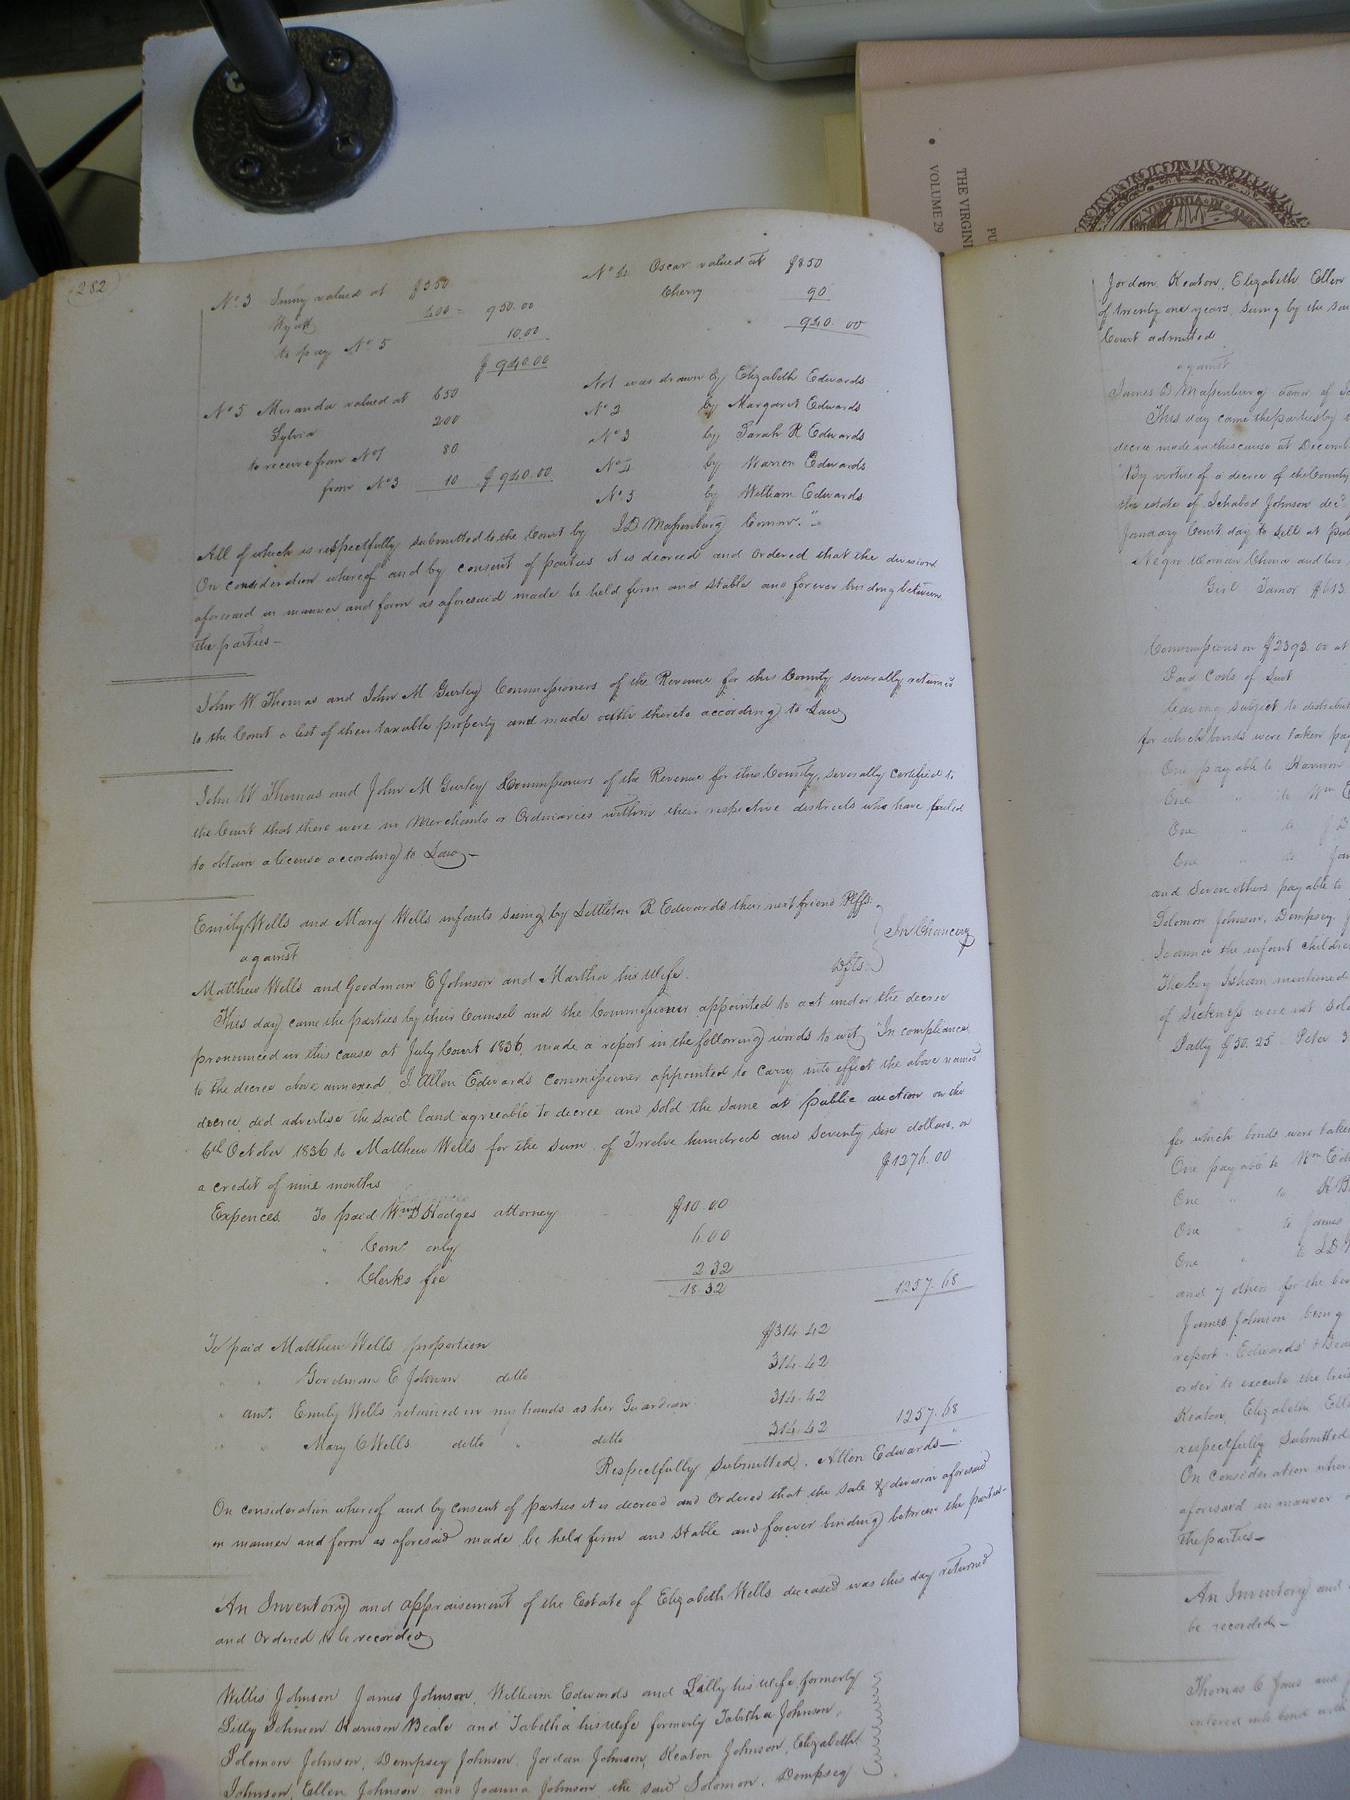 THE VIRGINI
VOLUME 29
PU
VIRGINIA
282
No 3 Jinny valued at $550
Wyatt 400 = 950.00
to pay No 5 10.00
$940.00
No 5 Miranda valued at 650
Sylvia 200
to receive from No 1 80
from No 3 10 $940.00
No 4 Oscar valued at $850
Cherry 90
940.00
No 1 was drawn by Elizabeth Edwards
No 2 by Margaret Edwards
No 3 by Sarah R Edwards
No 4 by Warren Edwards
No 5 by William Edwards
All of which is respectfully submitted to the Court by J D Massenburg Commr."
On consideration whereof and by consent of parties it is decreed and ordered that the division
aforesaid in manner and form as aforesaid made be held firm and stable and forever binding between
the parties-
John W Thomas and John M Gurley Commissioners of the Revenue for this County severally returned
to the Court a list of their taxable property and made oath thereto according to Law
John W Thomas and John M Gurley Commissioners of the Revenue for this County, severally certified to
the Court that there were no Merchants or Ordinaries within their respective districts who have failed
to obtain a license according to Law-
Emily Wells and Mary Wells infants suing by Littleton R Edwards their next friend Plffs.
against In Chancery
Matthew Wells and Goodman E Johnson and Martha his wife. Dfts.
This day came the parties by their Counsel and the Commissioner appointed to act under the decree
pronounced in this cause at July Court 1836, made a report in the following words to wit, "In compliance
to the decree above annexed I Allen Edwards Commissioner appointed to carry into effect the above named
decree, did advertise the said land agreeable to decree and sold the same at public auction on the
6th October 1836 to Matthew Wells for the sum of Twelve hundred and seventy six dollars, on
a credit of nine months $1276.00
Expences To paid Wm D Hodges attorney $10.00
" Comr. only 6.00
" Clerks fee 2 32
18 32 1257.68
To paid Matthew Wells proportion $314.42
" " Goodman E Johnson ditto 314.42
" amt. Emily Wells retained in my hands as her Guardian 314.42
" " Mary C Wells ditto " ditto 314.42 1257.68
Respectfully submitted, Allen Edwards-"
On consideration whereof and by consent of parties it is decreed and ordered that the sale & division aforesaid
in manner and form as aforesaid made be held firm and stable and forever binding between the parties-
An Inventory and appraisement of the Estate of Elizabeth Wells deceased was this day returned
and Ordered to be recorded
Willis Johnson James Johnson, William Edwards and Lilly his wife formerly
Lilly Johnson Harrison Beale and Tabitha his wife formerly Tabitha Johnson,
Solomon Johnson, Dempsey Johnson, Jordan Johnson, Keaton Johnson, Elizabeth
Johnson, Ellen Johnson and Joanna Johnson the said Solomon, Dempsey
Jordan, Keaton, Elizabeth Ellen
of twenty one years, suing by the sai
Court admitted
against
James D Massenburg admr of
This day came the parties by
decree made in this cause at Decemb
"By virtue of a decree of the County
the estate of Ichabod Johnson decd
January Court day to sell at pub
Negro woman China and two
Girl Tamor $613.
Commissions on $2393.00 at
Paid Costs of Suit
leaving subject to distribut
for which bonds were taken pay
One payable to Harrison
One " to Wm E
One " to J D
One " to Jam
and seven others payable to
Solomon Johnson, Dempsey, J
Joanna the infant children
The boy Isham mentioned
of sickness were not sol
Patty $30.25 Peter 3
for which bonds were taken
One payable to Wm Edw
One " to H B
One " to James
One " to J D
and 7 others for the
James Johnson being
report. Edwards & Bea
order to execute the
Keaton, Elizabeth Elle
respectfully submitted
On consideration wher
aforesaid in manner a
the parties-
An Inventory and
be recorded-
Thomas C Jans and
entered into bond with